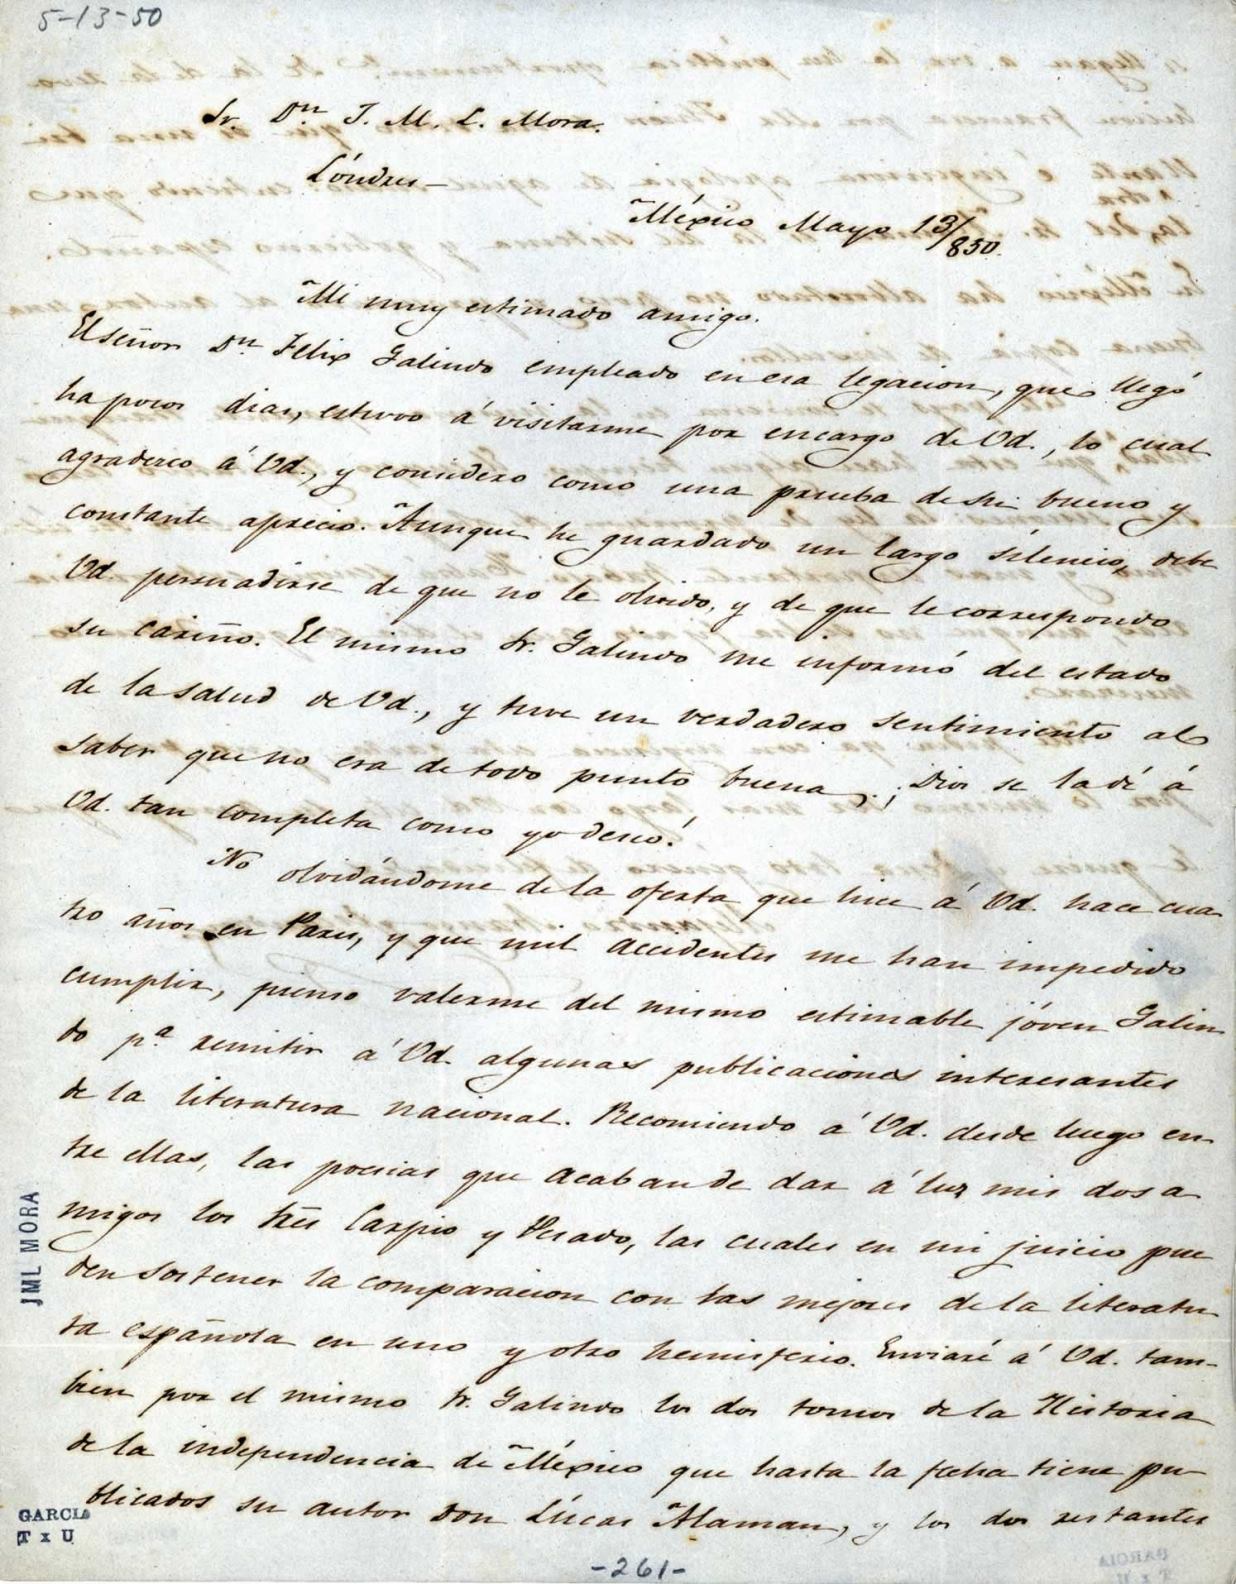 5-13-50
Sr. Dn. J. M. L. Mora.
Lóndres—
México Mayo 13/850.
Mi muy estimado amigo.
El señor Dn. Felix Galindo empleado en esa legacion, que llegó
ha pocos dias, estuvo á visitarme por encargo de Vd., lo cual
agradezco á Vd., y considero como una prueba de su bueno y
constante aprecio. Aunque he guardado un largo silencio, debe
Vd. persuadirse de que no le olvido, y de que le correspondo
su cariño. El mismo Sr. Galindo me informó del estado
de la salud de Vd., y tuve un verdadero sentimiento al
saber que no era de todo punto buena. ¡Dios se la dé á
Vd. tan completa como yo deseo!
No olvidándome de la oferta que hice á Vd. hace cua
tro años en Paris, y que mil accidentes me han impedido
cumplir, pienso valerme del mismo estimable jóven Galin
do pa. remitir á Vd. algunas publicaciones interesantes
de la literatura nacional. Recomiendo á Vd. desde luego en-
tre ellas, las poesias que acaban de dar á luz mis dos a-
migos los Sres. Carpio y Pesado, las cuales en mi juicio pue
den sostener la comparacion con las mejores de la literatu-
ra española en uno y otro hemisferio. Enviaré á Vd. tam-
bien por el mismo Sr. Galindo los dos tomos de la Historia
de la independencia de México que hasta la fecha tiene pu-
blicados su autor don Lúcas Alaman, y los dos restantes
JML MORA
GARCIA
T x U
-261-